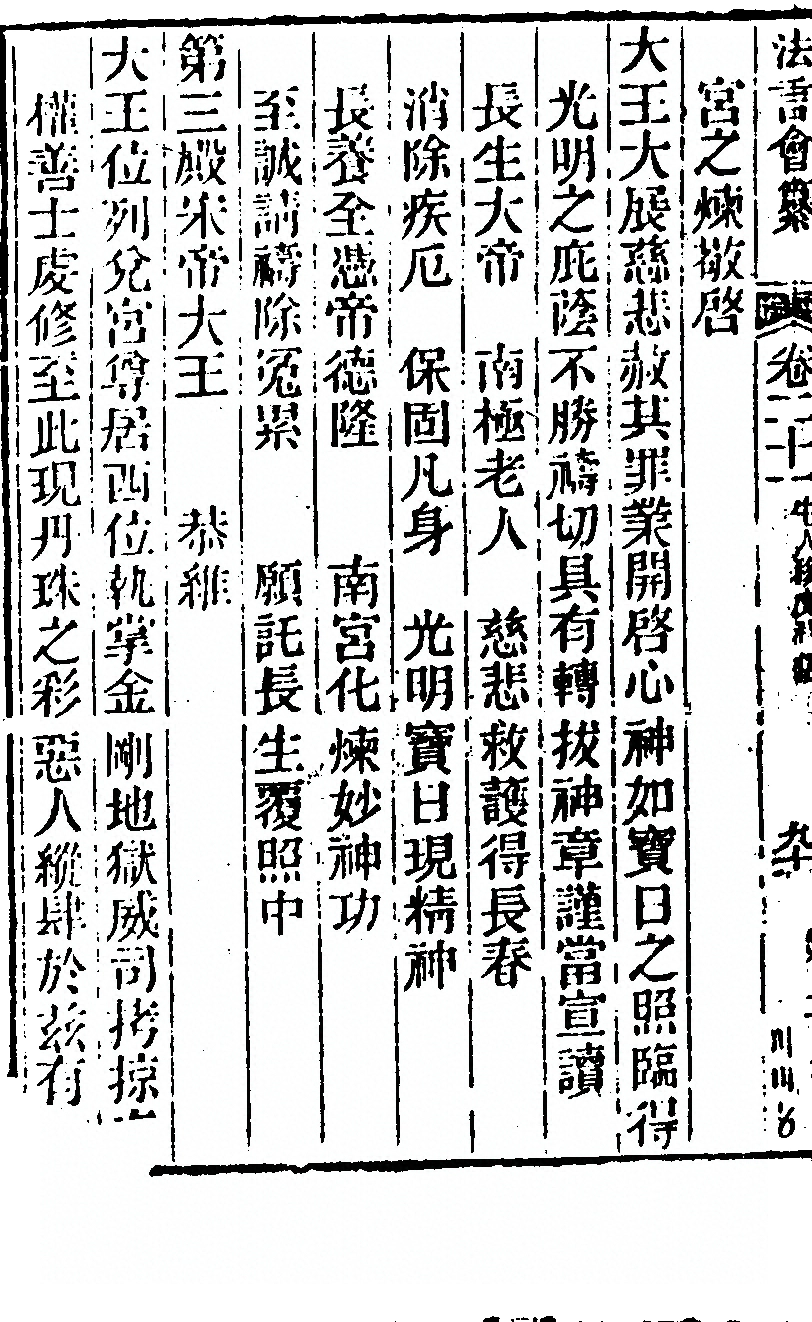 法言會纂 卷二十一
宮之煉敬啓
大王大展慈悲赦其罪業開啓心神如寶日之照臨得
光明之庇蔭不勝禱切具有轉拔神章謹當宣讀
長生大帝 南極老人 慈悲救護得長春
消除疾厄 保固凡身 光明寶日現精神
長養全憑帝德隆 南宮化煉妙神功
至誠請禱除冤累 願託長生覆照中
第三殿宋帝大王 恭維
大王位列兌宮尊居西位執掌金剛地獄威司拷掠
權善士虔修至此現丹珠之彩惡人縱肆於茲有